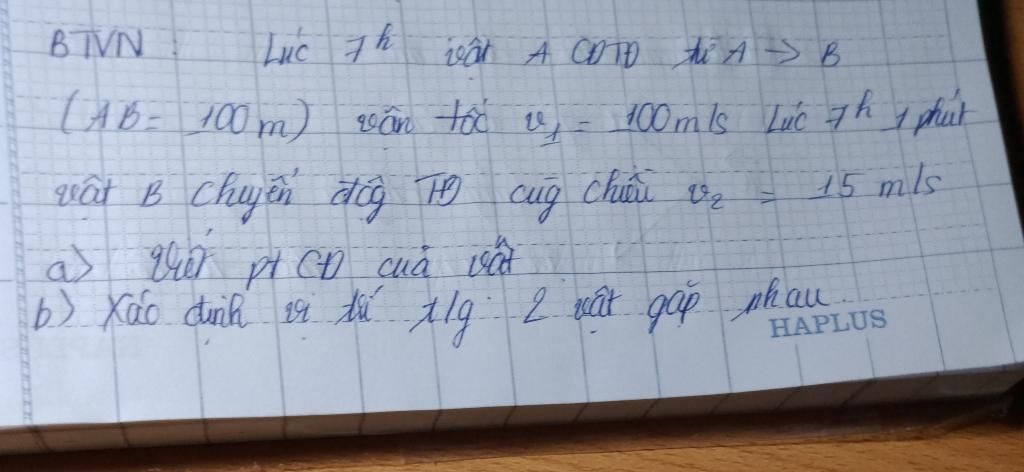 BTVN : Lúc 7h vật A CĐTĐ từ A → B
(AB = 100 m) vận tốc v₁ = 100 m/s Lúc 7h 1 phút
vật B chuyển độg TĐ cùg chiều v₂ = 15 m/s
a) Viết pt CĐ của vật
b) Xác định vị trí t/g 2 vật gặp nhau.
HAPLUS